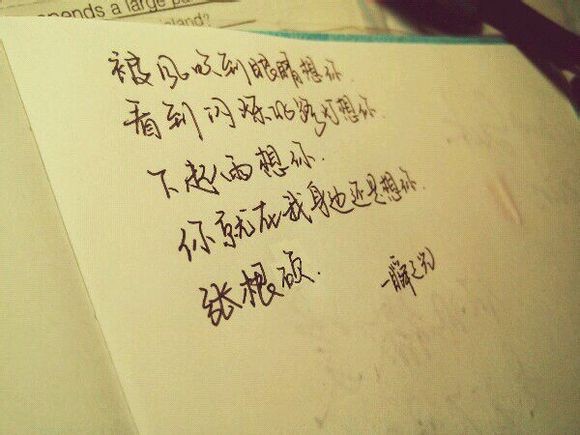 ends a large pa
island?
被风吹到眼睛想你.
看到闪烁的路灯想你.
下起雨想你.
你就在我身边还是想你.
张根硕.